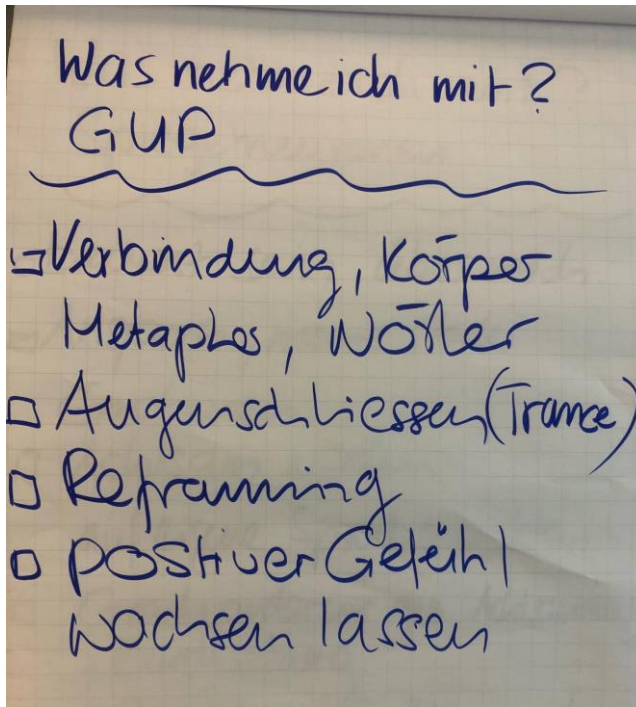 Was nehme ich mit?
GUP
Verbindung, Körper
Metaphos, Wörter
Augenschliessen (Trance)
Reframing
positiver Gefühl
wachsen lassen